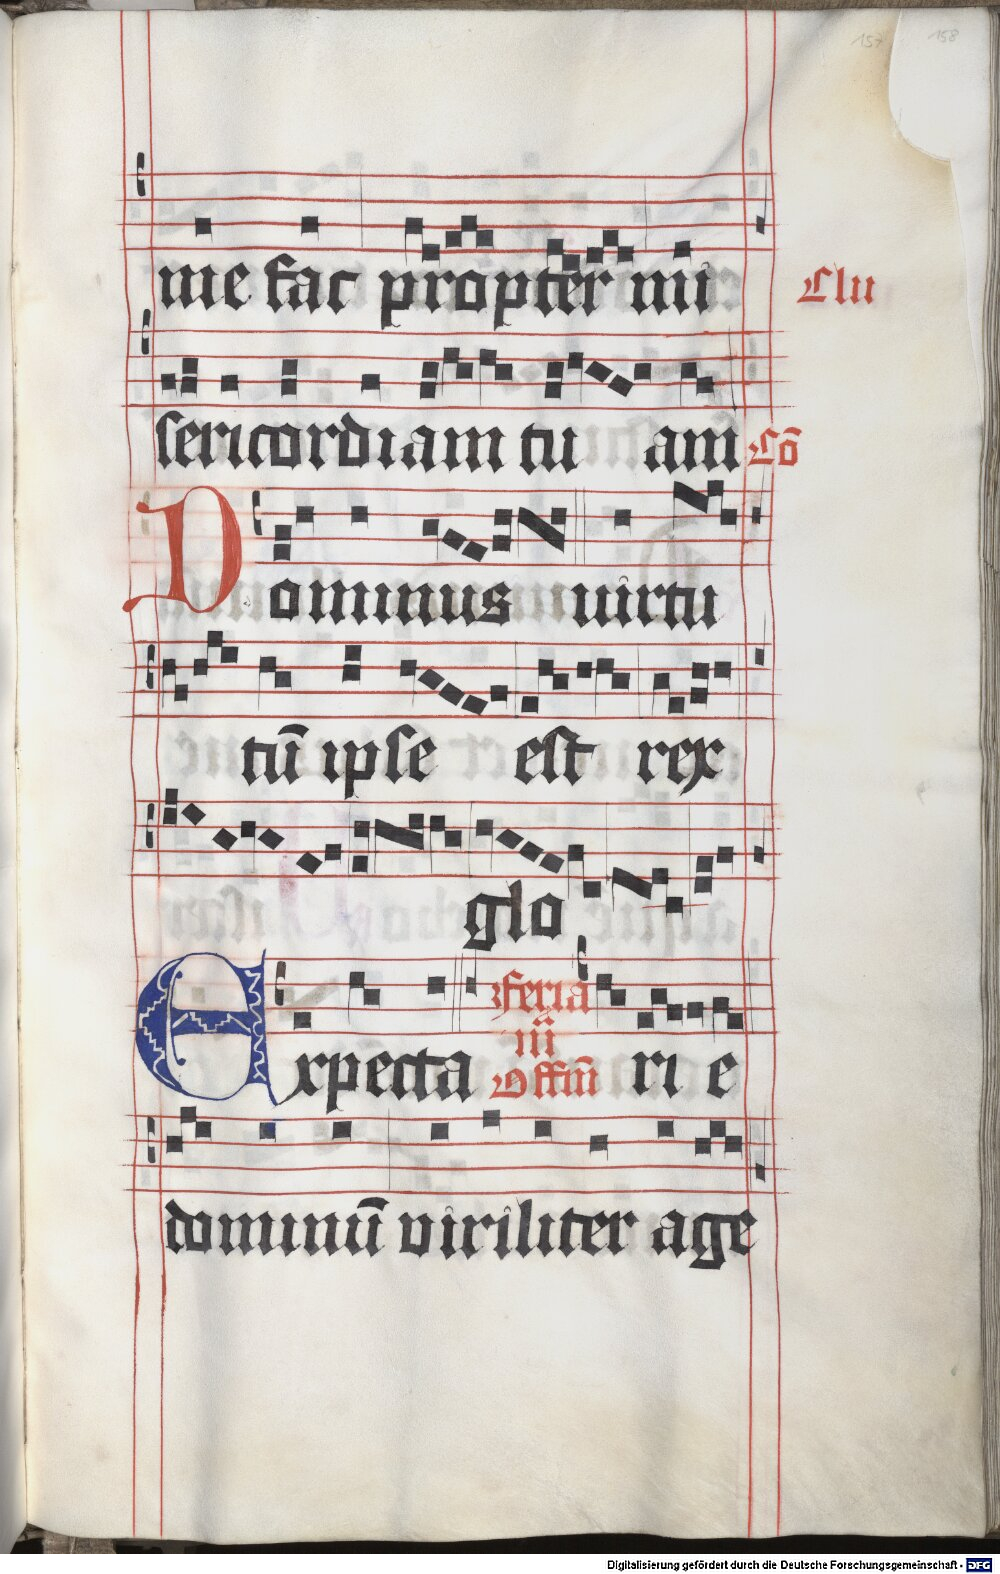 157 158
me fac propter mi Clu
sericordiam tu am Cō
Dominus uirtu
tū ipse est rex
glo
Expecta feria iii Offm̄ ri e
dominū viriliter age
Digitalisierung gefördert durch die Deutsche Forschungsgemeinschaft - DFG